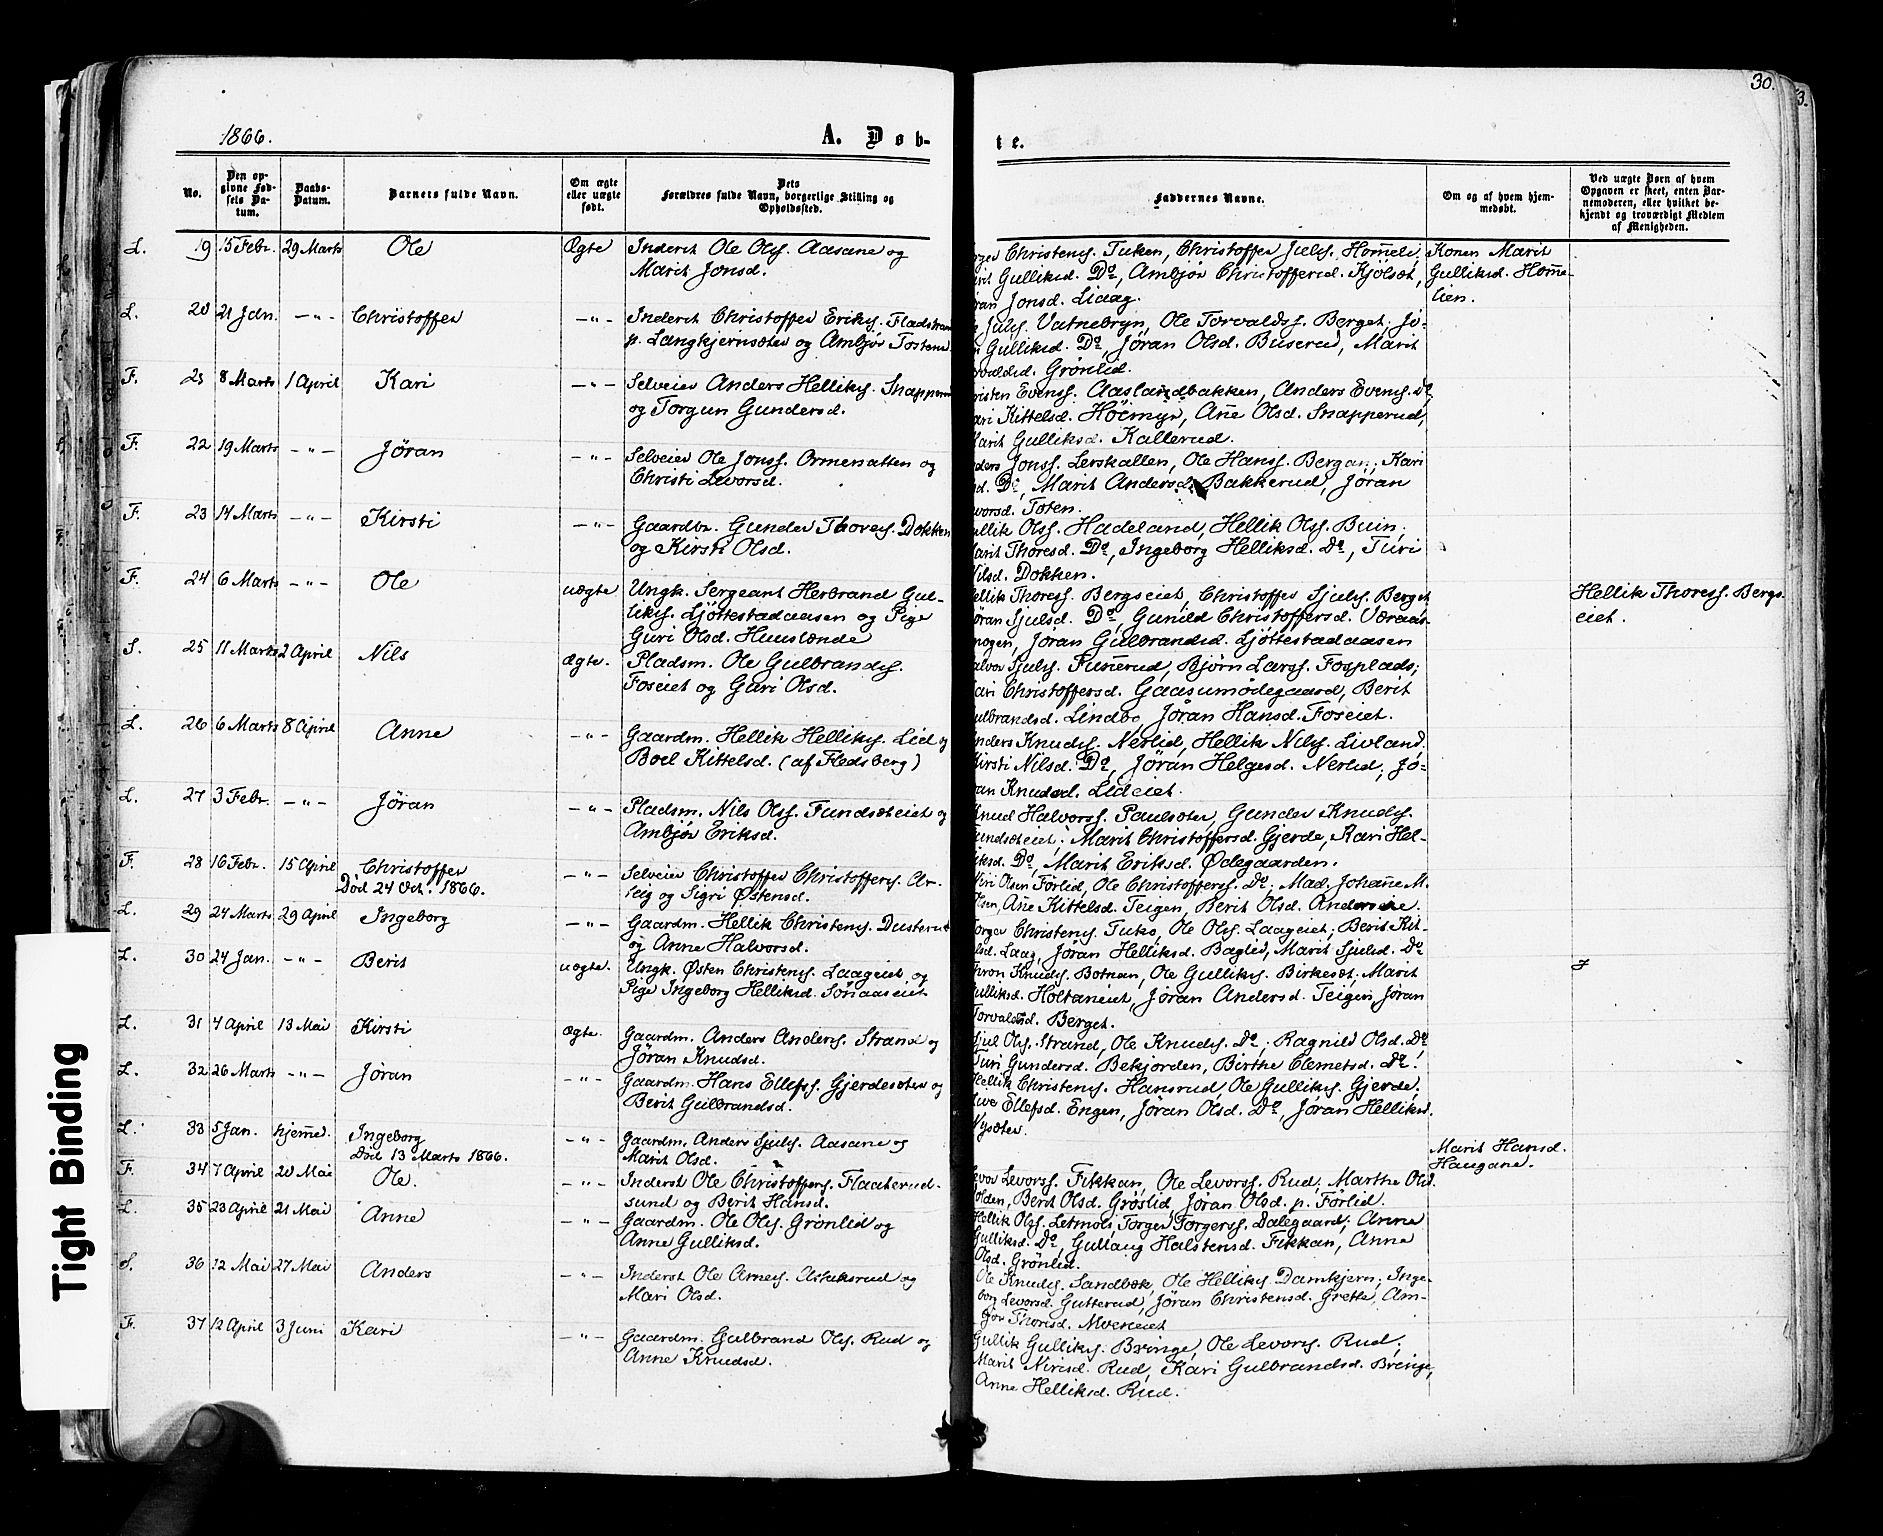 30.
3.
1866.
A. Døb-
te.
No.
Den op-
givne Fød-
sels Da-
tum.
Daabs-
Datum.
Barnets fulde Navn.
Om ægte
eller uægte
født.
Dets
Forældres fulde Navn, borgerlige Stilling og
Opholdssted.
Faddernes Navne.
Om og af hvem hjem-
medøbt.
Ved uægte Børn af hvem
Opgaven er skeet, enten Bar-
nemoderen, eller hvilket be-
kjendt og troværdigt Medlem
af Menigheden.
L. 19 15 Febr. 29 Marts Ole Ægte Inderst Ole Olss. Aasane og
Marit Jonsd.
Christenss. Tuken, Christoffer Julss. Hom̄eli,
Gulliksd. Do, Ambjør Christoffersd. Kjölset,
Jonsd. Liaag.
Konen Marit
Gulliksd. Hom̄e-
lien.
L. 20 21 Jan. -"- Christoffer -"- Inderst Christoffer Erikss. Fladstran
p. Langkjernsæter og Ambjør Tostens
Julss. Vatnebryn, Ole Torvaldss. Berget, Jø-
Gulliksd. Do, Jøran Olsd. Buserud, Marit
Grønlid.
F. 21 8 Marts 1 April Kari -"- Selveier Anders Hellikss. Snapperu
og Torgun Gundersd.
risten Evenss. Aaslandbakken, Anders Evenss. Do,
ari Kittelsd. Höimyr, An̄e Olsd. Snapperud,
arit Gulliksd. Kallerud.
F. 22 19 Marts -"- Jøran -"- Selveier Ole Jonss. Ormenatten og
Christi Levorsd.
ders Jonss. Lerskallen, Ole Hanss. Bergan, Kari
d. Do, Marit Andersd. Bakkerud, Jøran
vorsd. Toten.
F. 23 14 Marts -"- Kirsti -"- Gaardbr. Gunder Thoress. Dokken
og Kirsti Olsd.
ullik Olss. Hadeland, Hellik Olss. Buin,
arit Thoresd. Do, Ingeborg Helliksd. Do, Turi
Nilsd. Dokken.
F. 24 6 Marts -"- Ole uægte Ungk. Sergeant Herbrand Gul-
likss. Ljøttestadaasen og Pige
Guri Olsd. Huuslænde
ellik Thoress. Bergseiet, Christoffer Sjulss. Berget
øran Sjulsd. Do, Gunild Christoffersd. Væraas-
mogen, Jøran Gulbrandsd. Ljøttestadaasen
Hellik Thoress. Bergs
eiet.
S. 25 11 Marts 2 April Nils Ægte. Pladsm. Ole Gulbrandss.
Foseiet og Guri Olsd.
alvor Sjulss. Fun̄erud, Bjørn Larss. Fosplads;
ari Christoffersd. Gaasumødegaard, Berit
ulbrandsd. Lindbo, Jøran Hansd. Foseiet.
L. 26 6 Marts 8 April Anne -"- Gaardm. Hellik Hellikss. Lid og
Boel Kittelsd. (af Flesberg)
nders Knudss. Nerlid, Hellik Nilss. Livland.
irsti Nilsd. Do, Jøran Helgesd. Nerlid, Jø-
ran Knudsd. Lideiet.
L. 27 3 Febr. -"- Jøran -"- Pladsm. Nils Olss. Fundsæteiet og
Ambjør Eriksd.
Knud Halvorss. Paulsæter, Gunder Knudss.
undsæteiet; Marit Christoffersd. Gjerde, Kari Hel-
liksd. Do, Marit Eriksd. Ødegaarden.
F. 28 16 Febr. 15 April Christoffer
Død 24 Oct. 1866.
-"- Selveier Christoffer Christofferss. Ar-
og Sigri Østensd.
Olsen Førlid, Ole Christofferss. Do; Mad. Johan̄e M.
An̄e Kittelsd. Teigen, Berit Olsd.
L. 29 24 Marts 29 April Ingeborg -"- Gaardm. Hellik Christenss. Dusterud
og Anne Halvorsd.
Torger Christenss. Ole Olss. Laageiet; Berit Kit-
telsd. Laag, Jøran Helliksd. Baglid, Marit Sjulsd. Do
L. 30 24 Jan. -"- Berit uægte. Ungk. Østen Christenss. Laageiet og
Pige Ingeborg Helliksd. Sønaaseiet
Thron Knudss. Botnan, Ole Gullikss. Birkesæt, Marit
Gulliksd. Holtaneiet, Jøran Andersd. Teigen, Jøran
Torvaldsd. Berget.
L. 31 4 April 13 Mai Kirsti Ægte. Gaardm. Anders Anderss. Strand og
Jøran Knudsd.
Sjul Olss. Strand, Ole Knudss. Do; Ragnild Olsd. Do
Turi Gundersd. Bekjorden, Birthe Clemetsd. Do.
L. 32 26 Marts -"- Jøran -"- Gaardm. Hans Ellefss. Gjerdesæter og
Berit Gulbrandsd.
Hellik Christenss. Hansrud, Ole Gullikss. Gjerde,
Live Ellefsd. Engen, Jøran Olsd. Do, Jøran Helliksd.
Nysæter.
L. 33 5 Jan. hjem̄ed. Ingeborg
Død 13 Marts 1866.
-"- Gaardm. Anders Sjulss. Aasane og
Marit Olsd.
Marit Hansd.
Haugane.
F. 34 7 April 20 Mai Ole. -"- Inderst Ole Christofferss. Flaaterud-
sund og Berit Hansd.
Levor Levorss. Fikkan, Ole Levorss. Rud, Marthe Olsd.
Berit Olsd. Grøslid, Jøran Olsd. p. Førlid.
L. 35 23 April 21 Mai Anne -"- Gaardm. Ole Olss. Grønlid og
Anne Gulliksd.
Hellik Olss. Letmoli, Torger Torgerss. Dalegaard; Anna
Gulliksd. Do, Gullaug Halstensd. Fikkan, Anna
Olsd. Grønlid.
S. 36 12 Mai 27 Mai Anders -"- Inderst Ole Arness. Aslaksrud og
Mari Olsd.
Ole Knudss. Sandbæk, Ole Hellikss. Damkjern; Inge-
borg Levorsd. Gutterud, Jøran Christensd. Grette, Am-
bjør Thorisd. Moeneiet
F. 37 12 April 3 Juni Kari -"- Gaardm. Gulbrand Olss. Rud og
Anne Knudsd.
Gullik Gullikss. Bringe, Ole Levorss. Rud;
Marit Nirisd. Rud, Kari Gulbrandsd. Bringe,
Anne Helliksd. Rud.
Tight Binding